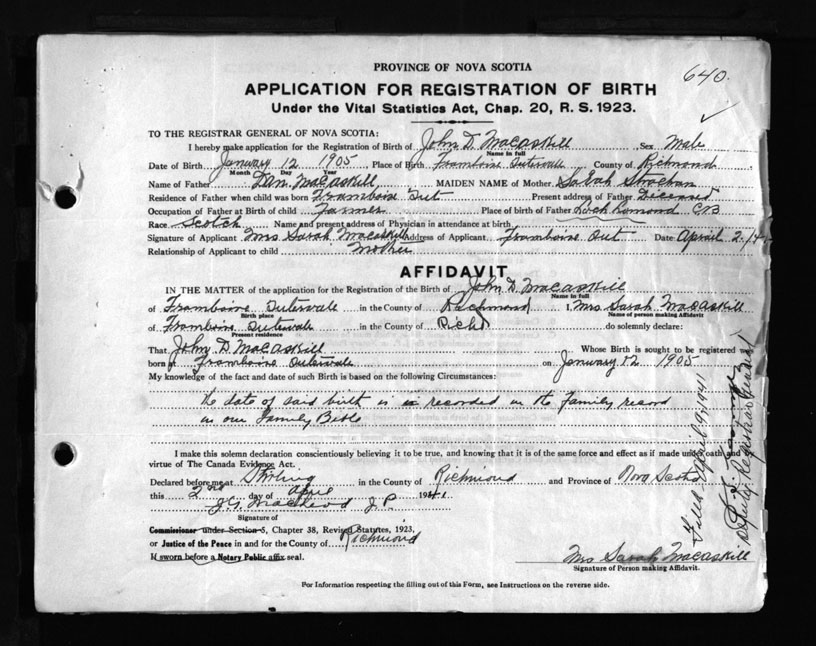 PROVINCE OF NOVA SCOTIA
640.
APPLICATION FOR REGISTRATION OF BIRTH
Under the Vital Statistics Act, Chap. 20, R. S. 1923.
TO THE REGISTRAR GENERAL OF NOVA SCOTIA:
I hereby make application for the Registration of Birth of John D. MacAskill Sex Male
Name in full
Date of Birth January 12 1905 Place of Birth Framboise Intervale County of Richmond
Month Day Year
Name of Father Dan. MacAskill MAIDEN NAME of Mother Sarah Strachan
Residence of Father when child was born Framboise Int Present address of Father Deceased
Occupation of Father at Birth of child Farmer Place of birth of Father Loch Lomond CB
Race Scotch Name and present address of Physician in attendance at birth
Signature of Applicant Mrs Sarah MacAskill Address of Applicant Framboise Int Date April 2
Relationship of Applicant to child Mother
AFFIDAVIT
IN THE MATTER of the application for the Registration of the Birth of John D. MacAskill
Name in full
of Framboise Intervale in the County of Richmond I, Mrs Sarah MacAskill
Birth place Name of person making Affidavit
of Framboise Intervale in the County of Richd do solemnly declare:
Present residence
That John D MacAskill Whose Birth is sought to be registered was
born at Framboise Intervale on January 12 1905
My knowledge of the fact and date of such Birth is based on the following Circumstances:
The date of said birth is recorded in the Family record
in our Family Bible
I make this solemn declaration conscientiously believing it to be true, and knowing that it is of the same force and effect as if made under oath and
virtue of The Canada Evidence Act.
Declared before me at Stirling in the County of Richmond and Province of Nova Scotia
this 2nd day of April 1941
J. G. MacLeod J. P.
Signature of
Commissioner under Section 5, Chapter 38, Revised Statutes, 1923,
or Justice of the Peace in and for the County of Richmond
If sworn before a Notary Public affix seal.
Mrs Sarah MacAskill
Signature of Person making Affidavit.
For Information respecting the filling out of this Form, see Instructions on the reverse side.
Filed April 9 1941
Deputy Registrar General